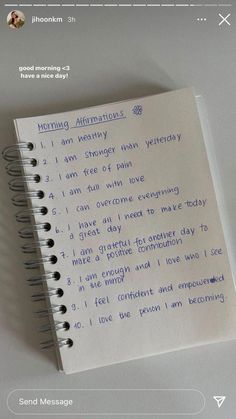 jihoonkm 3h
good morning <3
have a nice day!
Morning Affirmations
1. I am healthy
2. I am stronger than yesterday
3. I am free of pain
4. I am full with love
5. I can overcome everything
6. I have all I need to make today
a great day
7. I am grateful for another day to
make a positive contribution
8. I am enough and I love who I see
in the mirror
9. I feel confident and empowered
10. I love the person I am becoming.
Send Message